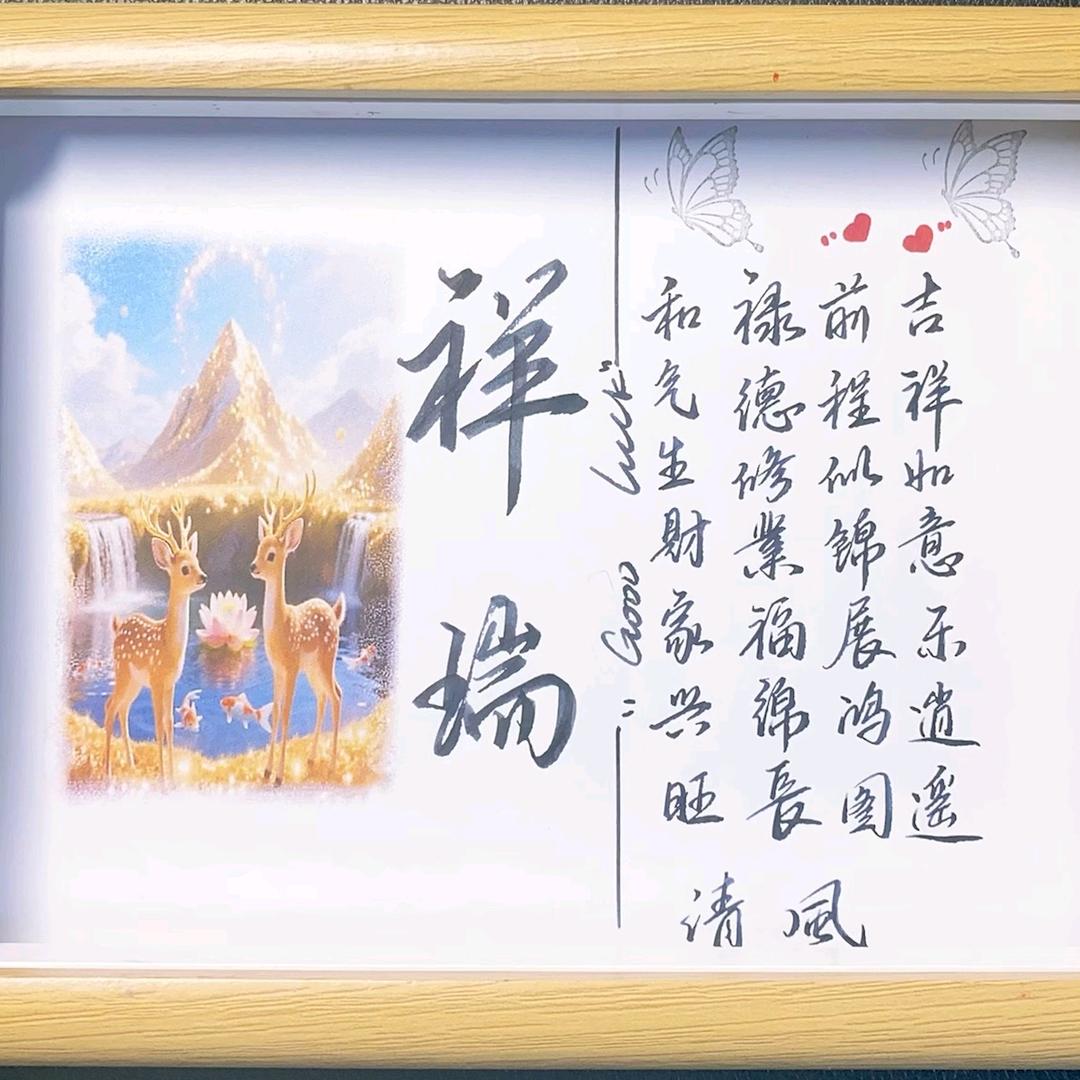 吉祥如意乐逍遥
前程似锦展鸿图
禄德修業福绵長
和气生財家兴旺
清風
"Good luck"
祥瑞